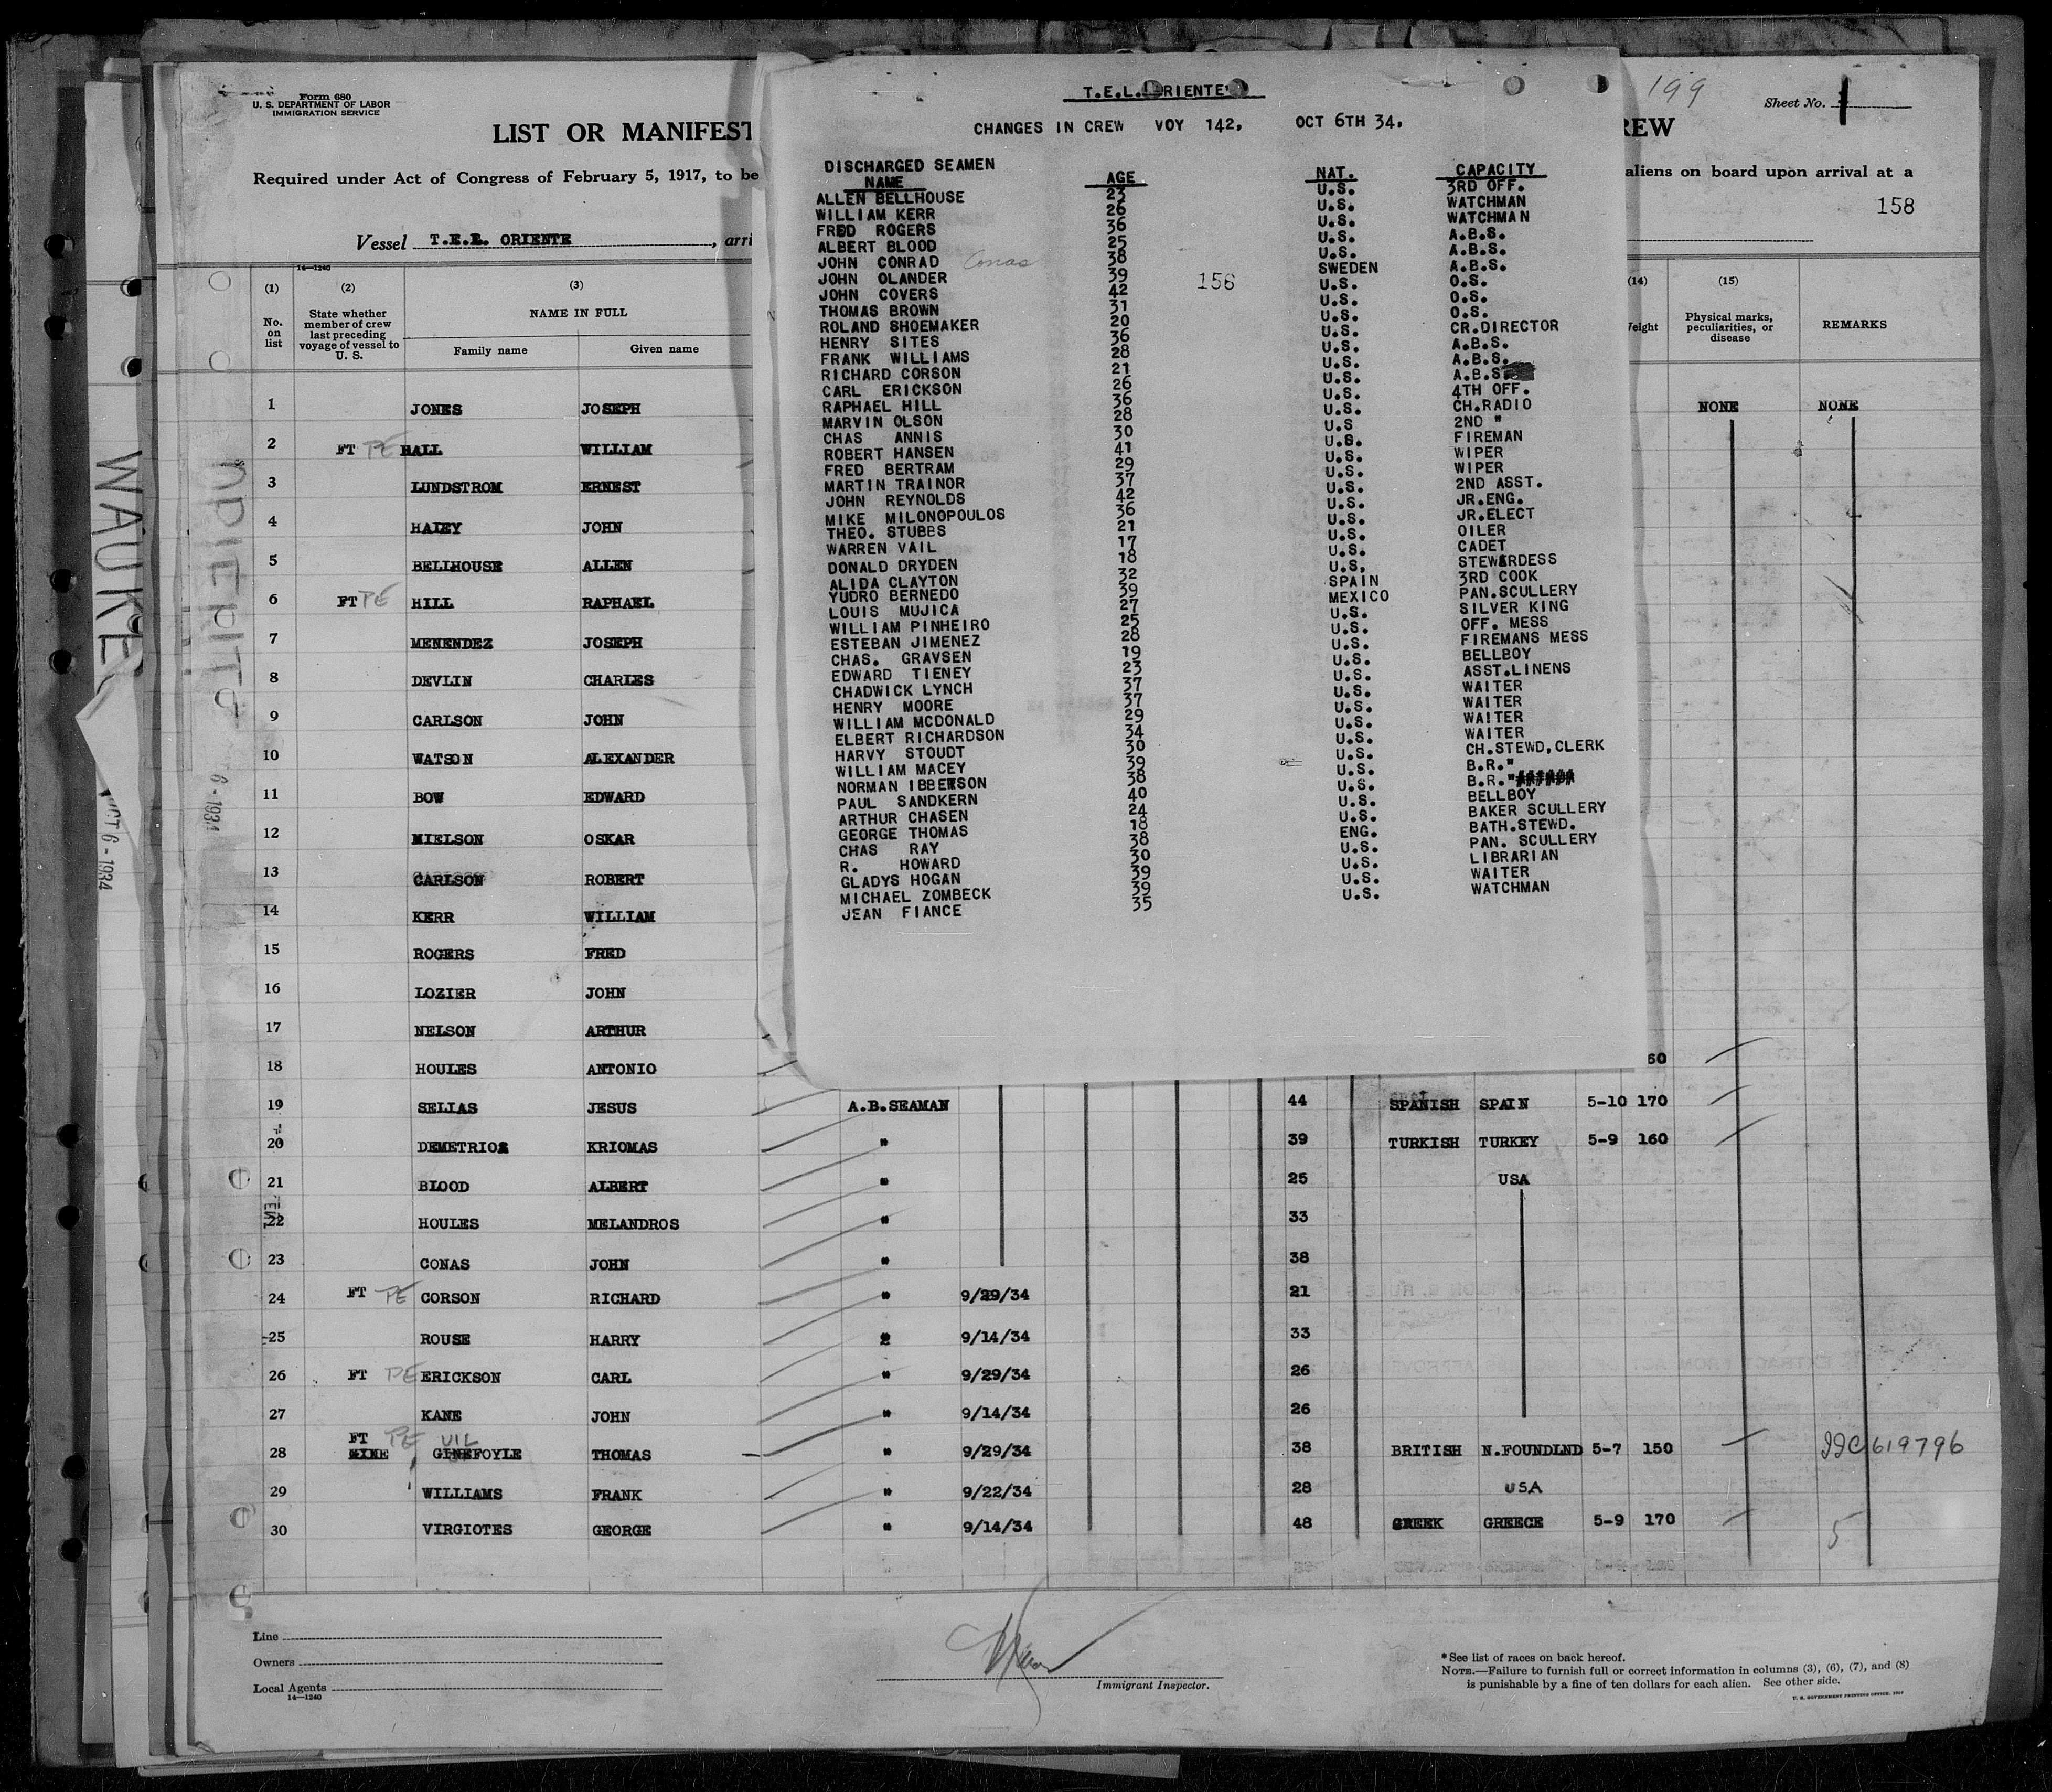 Form 680
U. S. DEPARTMENT OF LABOR
IMMIGRATION SERVICE
LIST OR MANIFEST
REW
199
Sheet No. 1
Required under Act of Congress of February 5, 1917, to be
aliens on board upon arrival at a
158
Vessel T.E.L. ORIENTE, arri
T.E.L. ORIENTE
CHANGES IN CREW VOY 142, OCT 6TH 34.
DISCHARGED SEAMEN
NAME AGE NAT. CAPACITY
ALLEN BELLHOUSE 23 U.S. 3RD OFF.
WILLIAM KERR 26 U.S. WATCHMAN
FRED ROGERS 36 U.S. WATCHMAN
ALBERT BLOOD 25 U.S. A.B.S.
JOHN CONRAD Conas 38 U.S. A.B.S.
JOHN OLANDER 39 SWEDEN A.B.S.
158
JOHN COVERS 42 U.S. O.S.
THOMAS BROWN 31 U.S. O.S.
ROLAND SHOEMAKER 20 U.S. O.S.
HENRY SITES 36 U.S. CR.DIRECTOR
FRANK WILLIAMS 28 U.S. A.B.S.
RICHARD CORSON 21 U.S. A.B.S.
CARL ERICKSON 26 U.S. A.B.S
RAPHAEL HILL 36 U.S. 4TH OFF.
MARVIN OLSON 28 U.S. CH.RADIO
CHAS ANNIS 30 U.S 2ND "
ROBERT HANSEN 41 U.S. FIREMAN
FRED BERTRAM 29 U.S. WIPER
MARTIN TRAINOR 37 U.S. WIPER
JOHN REYNOLDS 42 U.S. 2ND ASST.
MIKE MILONOPOULOS 36 U.S. JR.ENG.
THEO. STUBBS 21 U.S. JR.ELECT
WARREN VAIL 17 U.S. OILER
DONALD DRYDEN 18 U.S. CADET
ALIDA CLAYTON 32 U.S. STEWARDESS
YUDRO BERNEDO 39 SPAIN 3RD COOK
LOUIS MUJICA 27 MEXICO PAN.SCULLERY
WILLIAM PINHEIRO 25 U.S. SILVER KING
ESTEBAN JIMENEZ 28 U.S. OFF. MESS
CHAS. GRAVSEN 19 U.S. FIREMANS MESS
EDWARD TIENEY 23 U.S. BELLBOY
CHADWICK LYNCH 37 U.S. ASST.LINENS
HENRY MOORE 37 U.S. WAITER
WILLIAM MCDONALD 29 U.S. WAITER
ELBERT RICHARDSON 34 U.S. WAITER
HARVY STOUDT 30 U.S. WAITER
WILLIAM MACEY 39 U.S. CH.STEWD,CLERK
NORMAN IBBERSON 38 U.S. B.R."
PAUL SANDKERN 40 U.S. B.R."
ARTHUR CHASEN 24 U.S. BELLBOY
GEORGE THOMAS 18 U.S. BAKER SCULLERY
CHAS RAY 38 ENG. BATH.STEWD.
R. HOWARD 30 U.S. PAN. SCULLERY
GLADYS HOGAN 39 U.S. LIBRARIAN
MICHAEL ZOMBECK 39 U.S. WAITER
JEAN FIANCE 35 U.S. WATCHMAN
14—1240
(1) (2) (3) (14) (15)
No. on list
State whether member of crew last preceding voyage of vessel to U. S.
NAME IN FULL
Family name Given name
Weight
Physical marks, peculiarities, or disease
REMARKS
1 JONES JOSEPH NONE NONE
2 FT PE HALL WILLIAM
3 LUNDSTROM ERNEST
4 HALEY JOHN
5 BELLHOUSE ALLEN
6 FT PE HILL RAPHAEL
7 MENENDEZ JOSEPH
8 DEVLIN CHARLES
9 CARLSON JOHN
10 WATSON ALEXANDER
11 BOW EDWARD
12 MIELSON OSKAR
13 CARLSON ROBERT
14 KERR WILLIAM
15 ROGERS FRED
16 LOZIER JOHN
17 NELSON ARTHUR
18 HOULES ANTONIO 60
19 SELIAS JESUS A.B.SEAMAN 44 SPANISH SPAIN 5-10 170
20 DEMETRIOS KRIOMAS " 39 TURKISH TURKEY 5-9 160
21 BLOOD ALBERT " 25 USA
22 HOULES MELANDROS " 33
23 CONAS JOHN " 38
24 FT PE CORSON RICHARD " 9/29/34 21
25 ROUSE HARRY " 9/14/34 33
26 FT PE ERICKSON CARL " 9/29/34 26
27 KANE JOHN " 9/14/34 26
28 FT PE UIL GINEFOYLE THOMAS " 9/29/34 38 BRITISH N.FOUNDLND 5-7 150 619796
29 WILLIAMS FRANK " 9/22/34 28 USA
30 VIRGIOTES GEORGE " 9/14/34 48 GREEK GREECE 5-9 170 5
WAUKE
OCT 6 - 1934
6 - 1934
Line
Owners
Local Agents
14—1240
Immigrant Inspector.
* See list of races on back hereof.
NOTE.—Failure to furnish full or correct information in columns (3), (6), (7), and (8)
is punishable by a fine of ten dollars for each alien. See other side.
U. S. GOVERNMENT PRINTING OFFICE